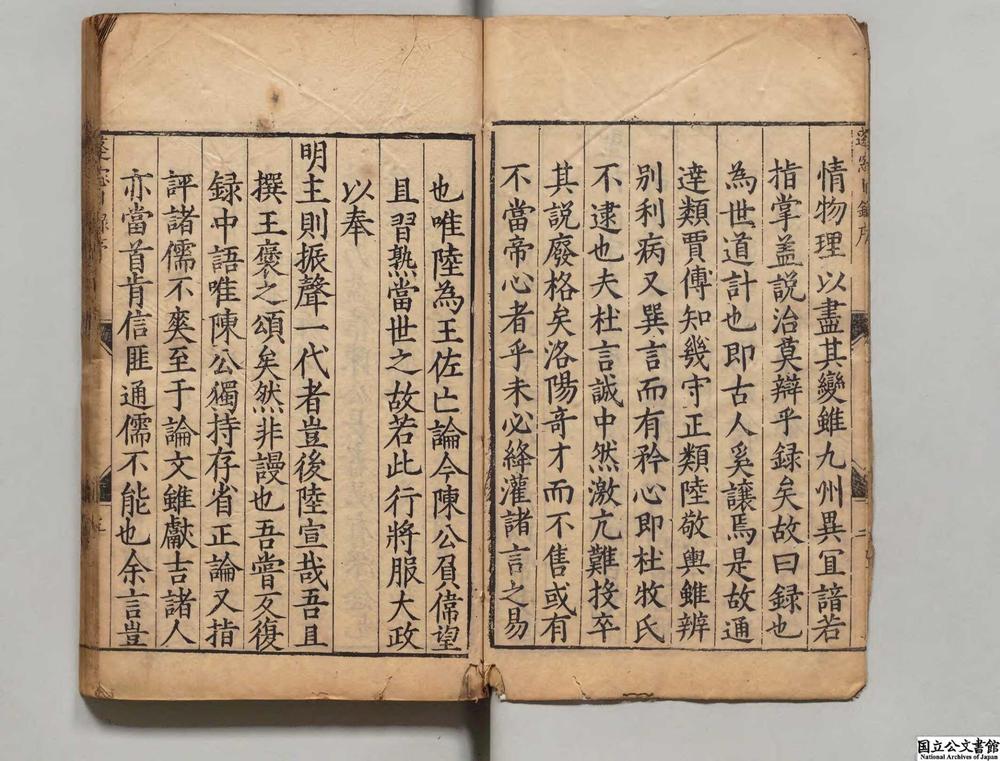 情物理以盡其變雖九州異冝諳若
指掌盖説治莫辯乎録矣故曰録也
為世道計也即古人奚譲焉是故通
達類賈傅知幾守正類陸敬輿雖辨
别利病又巽言而有矜心即杜牧氏
不逮也夫杜言誠中然激亢難投卒
其説廢格矣洛陽竒才而不售或有
不當帝心者乎未必絳灌諸言之易
也唯陸為王佐亡論今陳公負偉望
且習熟當世之故若此行将服大政
以奉
明主則振聲一代者豈後陸宣哉吾且
撰王褒之頌矣然非謾也吾嘗反復
録中語唯陳公獨持存省正論又指
評諸儒不爽至于論文雖獻吉諸人
亦當首肯信匪通儒不能也余言豈
国立公文書館
National Archives of Japan